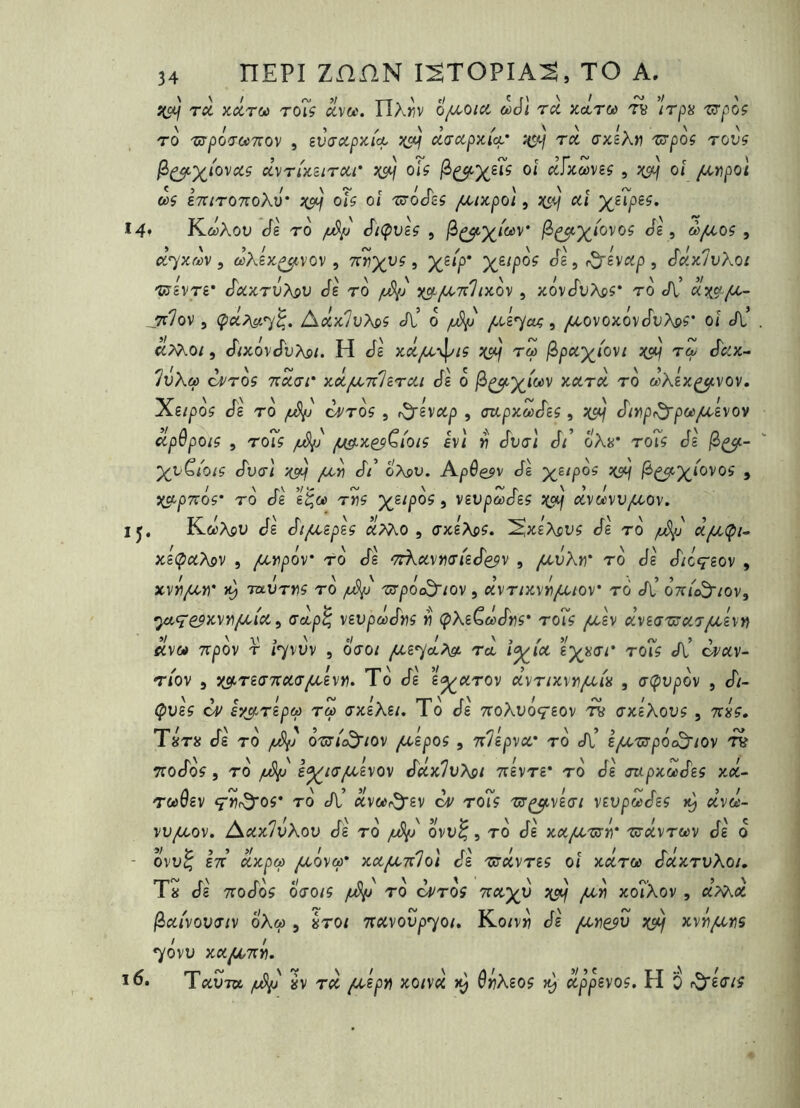 34 ΠΕΡΙ ΖΩΩΝ ΙΣΤΟΡΙΑΣ, ΤΟ Α.
καὶ τὰ κάτω τοῖς ἄνω. Πλὴν ὅμοια ὡδὶ τὰ κάτω τȣ͂ ἤτρȣ πρὸς
τὸ πρόσωπον , εὐσαρκίᾳ καὶ ἀσαρκίᾳ· καὶ τὰ σκέλη πρὸς τοὺς
βραχίονας ἀντίκειται· καὶ οἷς βραχεῖς οἱ ἀγκῶνες , καὶ οἱ μηροὶ
ὡς ἐπιτοπολύ· καὶ οἷς οἱ πόδες μικροὶ , καὶ αἱ χεῖρες.
14. Κώλου δὲ τὸ μὲν διφυὲς , βραχίων· βραχίονος δὲ , ὦμος ,
ἀγκὼν , ὠλέκρανον , πῆχυς , χείρ· χειρὸς δὲ , θέναρ , δάκτυλοι
πέντε· δακτύλου δὲ τὸ μὲν καμπτικὸν , κόνδυλος· τὸ δ' ἄκαμ-
πτον , φάλαγξ. Δάκτυλος δ' ὁ μὲν μέγας , μονοκόνδυλος· οἱ δ'
ἄλλοι , δικόνδυλοι. Η δὲ κάμψις καὶ τῷ βραχίονι καὶ τῷ δακ-
τύλῳ ἐντὸς πᾶσι· κάμπτεται δὲ ὁ βραχίων κατὰ τὸ ὠλέκρανον.
Χειρὸς δὲ τὸ μὲν ἐντὸς , θέναρ , σαρκῶδες , καὶ διῃρθρωμένον
ἄρθροις , τοῖς μὲν μακροβίοις ἑνὶ ἢ δυσὶ δι' ὅλȣ· τοῖς δὲ βρα-
χυβίοις δυσὶ καὶ μὴ δι' ὅλου. Αρθρον δὲ χειρὸς καὶ βραχίονος ,
καρπός· τὸ δὲ ἔξω τῆς χειρὸς , νευρῶδες καὶ ἀνώνυμον.
15. Κώλου δὲ διμερὲς ἄλλο , σκέλος. Σκέλους δὲ τὸ μὲν ἀμφι-
κέφαλον , μηρόν· τὸ δὲ πλανησίεδρον , μύλη· τὸ δὲ διόστεον ,
κνήμη· καὶ ταύτης τὸ μὲν πρόσθιον , ἀντικνήμιον· τὸ δ' ὀπίσθιον,
γαστροκνημία, σὰρξ νευρώδης ἢ φλεβώδης· τοῖς μὲν ἀνεσπασμένη
ἄνω πρὸν τ ἰγνὺν , ὅσοι μεγάλα τὰ ἰσχία ἔχȣσι· τοῖς δ' ἐναν-
τίον , κατεσπασμένη. Τὸ δὲ ἔσχατον ἀντικνημίȣ , σφυρὸν , δι-
φυὲς ἐν ἑκατέρῳ τῷ σκέλει. Τὸ δὲ πολυόστεον τȣ͂ σκέλους , πȣ́ς.
Τȣ́τȣ δὲ τὸ μὲν ὀπίσθιον μέρος , πτέρνα· τὸ δ' ἐμπρόσθιον τȣ͂
ποδὸς , τὸ μὲν ἐσχισμένον δάκτυλοι πέντε· τὸ δὲ σαρκῶδες κά-
τωθεν στῆθος· τὸ δ' ἄνωθεν ἐν τοῖς πρανέσι νευρῶδες καὶ ἀνώ-
νυμον. Δακτύλου δὲ τὸ μὲν ὄνυξ , τὸ δὲ καμπή· πάντων δὲ ὁ
ὄνυξ ἐπ' ἄκρῳ μόνῳ· καμπτοὶ δὲ πάντες οἱ κάτω δάκτυλοι.
Τȣ͂ δὲ ποδὸς ὅσοις μὲν τὸ ἐντὸς παχὺ καὶ μὴ κοῖλον , ἀλλὰ
βαίνουσιν ὅλῳ , ȣ̃τοι πανοῦργοι. Κοινὴ δὲ μηροῦ καὶ κνήμης
γόνυ καμπή.
16. Ταῦτα μὲν ȣ̃ν τὰ μέρη κοινὰ καὶ θήλεος καὶ ἄρρενος. Η ὃ θέσις